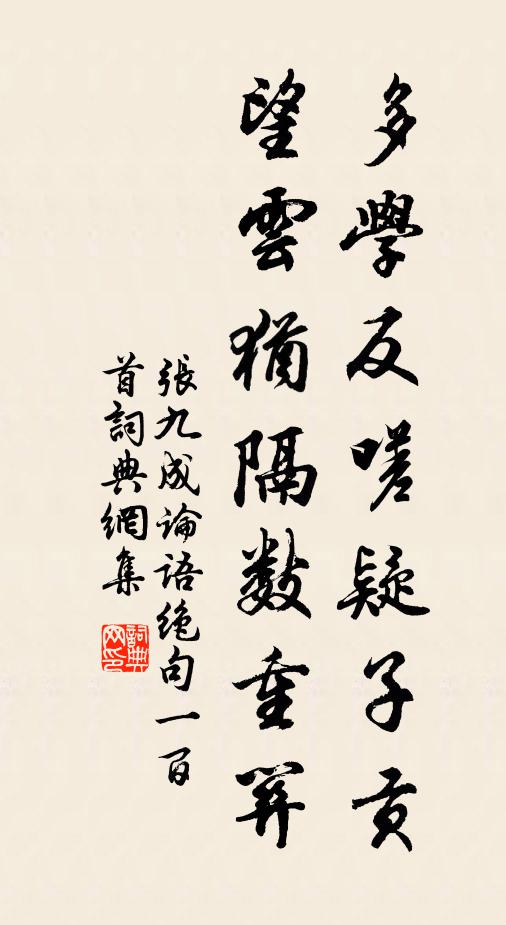 多學反嗟疑子貢
望雲猶隔數重關
張九成論語絶句一百
首詞典網集
詞典
网印